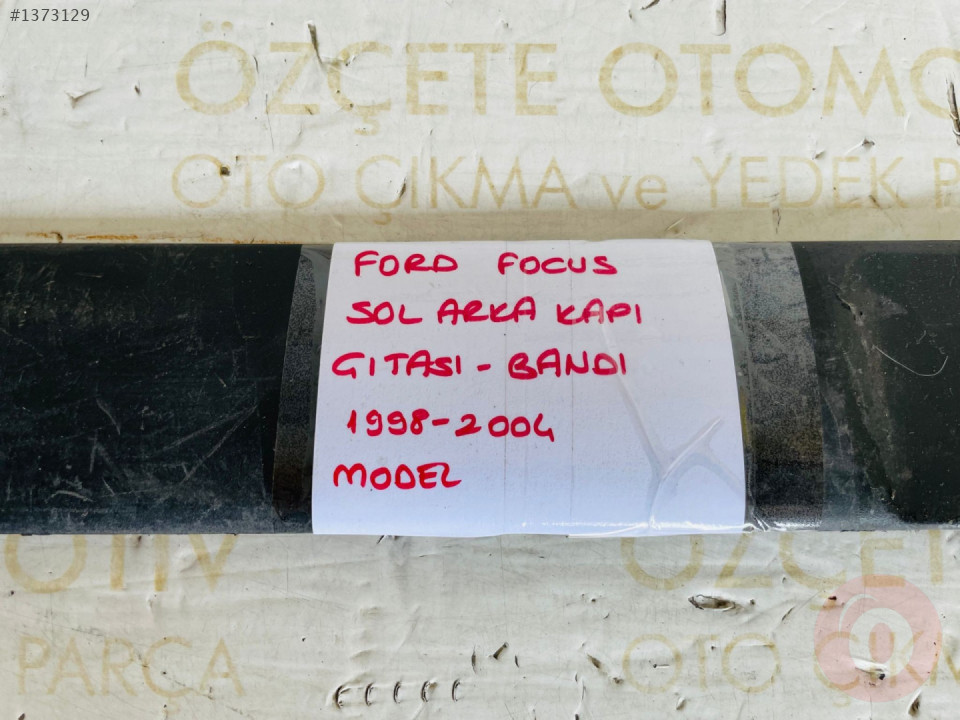 #1373129
ÖZÇETE OTOMO
OTO ÇIKMA ve YEDEK P
FORD FOCUS
SOL ARKA KAPI
GITASI - BANDI
1998-2004
MODEL
OTİV ÖZÇET
PARÇA OTO ÇIKM